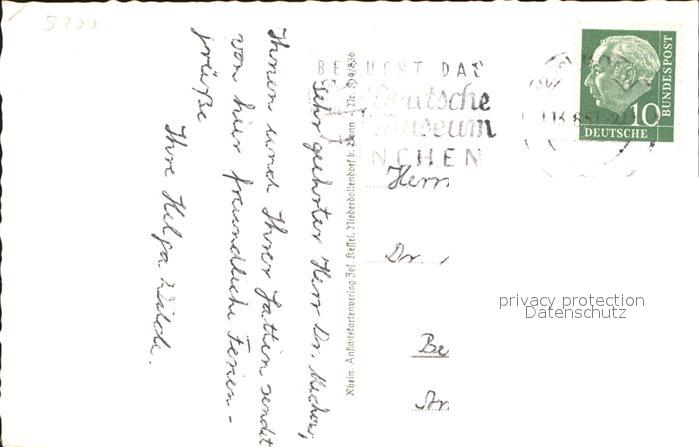 5200
BESUCHT DAS
Deutsche
Museum
MÜNCHEN
DEUTSCHE
BUNDESPOST
10
Sehr geehrter Herr Dr.
Ihnen und Ihrer Gattin sendet
von hier freundliche Ferien-
grüße
Ihre Helga
Rhein. Ansichtskartenverlag Jos. Keffel, Niederdollendorf b. Bonn Nr.
Herrn
Dr.
Be
An
privacy protection
Datenschutz